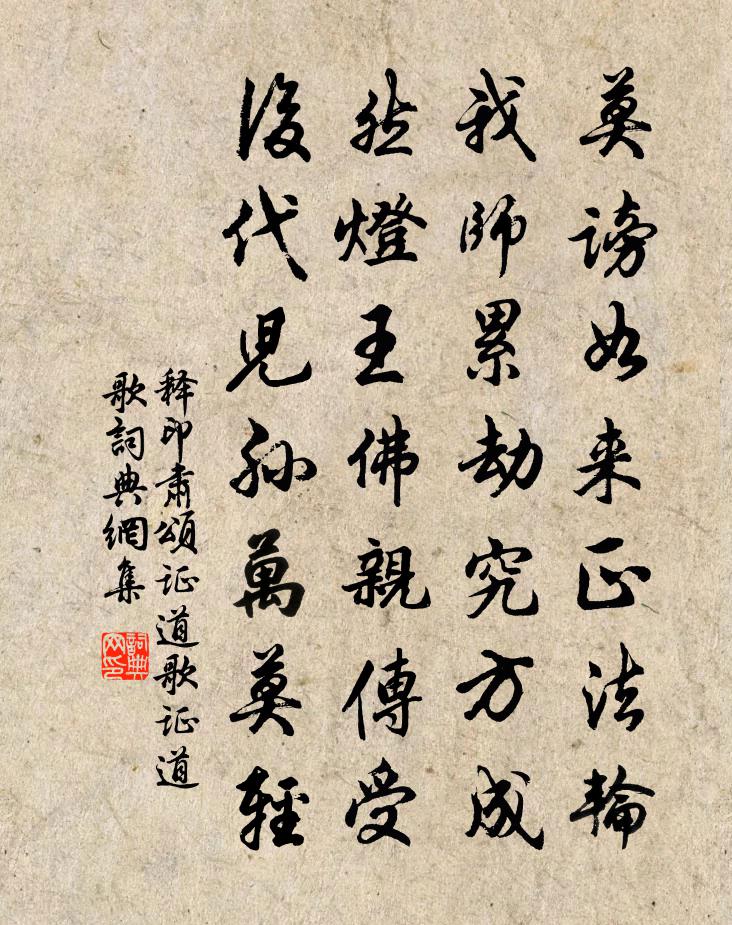 莫謗如来正法輪
我師累劫究方成
然燈王佛親傳受
後代兒孫萬莫輕
释印肅頌证道歌证道
歌詞典網集
詞典
网印